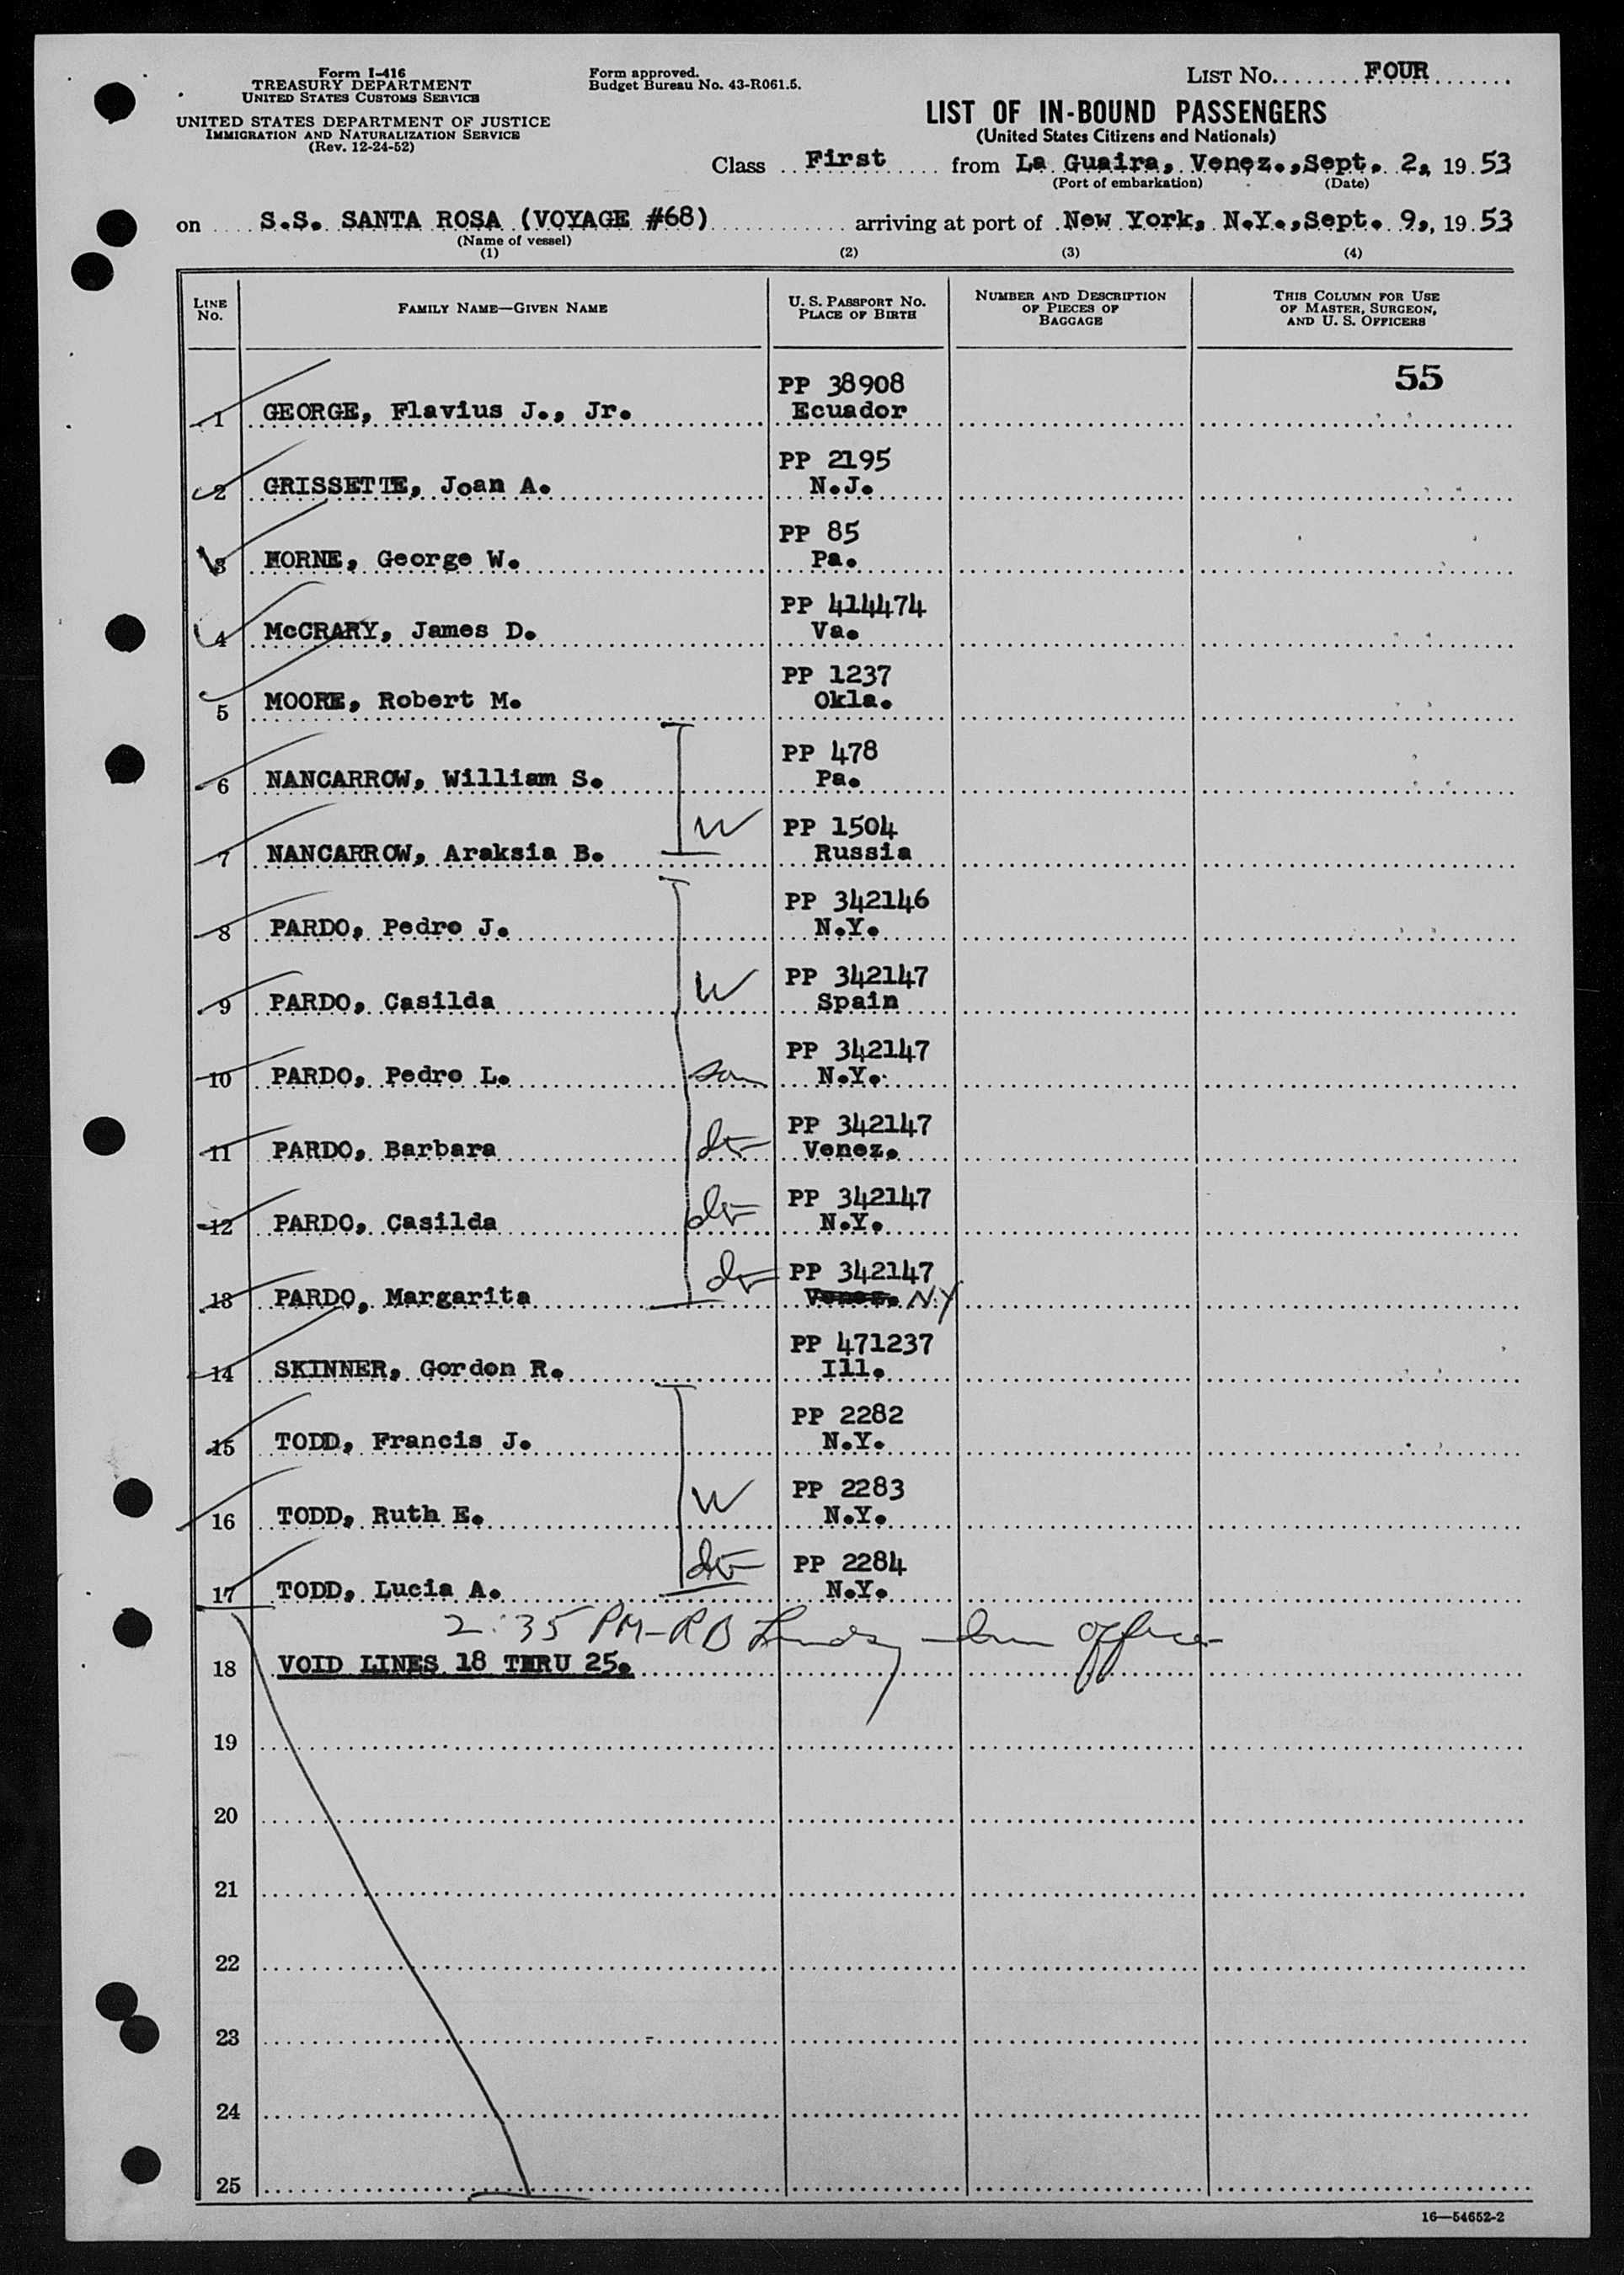 Form I-416
TREASURY DEPARTMENT
UNITED STATES CUSTOMS SERVICE
UNITED STATES DEPARTMENT OF JUSTICE
IMMIGRATION AND NATURALIZATION SERVICE
(Rev. 12-24-52)
Form approved.
Budget Bureau No. 43-R061.5.
LIST No. FOUR
LIST OF IN-BOUND PASSENGERS
(United States Citizens and Nationals)
Class First from La Guaira, Venez., Sept. 2, 1953
(Port of embarkation) (Date)
on S.S. SANTA ROSA (VOYAGE #68) arriving at port of New York, N.Y., Sept. 9, 1953
(Name of vessel)
(1) (2) (3) (4)
LINE No. FAMILY NAME—GIVEN NAME U. S. PASSPORT No. PLACE OF BIRTH NUMBER AND DESCRIPTION OF PIECES OF BAGGAGE THIS COLUMN FOR USE OF MASTER, SURGEON, AND U. S. OFFICERS
55
PP 38908
1 GEORGE, Flavius J., Jr. Ecuador
PP 2195
2 GRISSETTE, Joan A. N.J.
PP 85
3 HORNE, George W. Pa.
PP 414474
4 McCRARY, James D. Va.
PP 1237
5 MOORE, Robert M. Okla.
PP 478
6 NANCARROW, William S. Pa.
W PP 1504
7 NANCARROW, Araksia B. Russia
PP 342146
8 PARDO, Pedro J. N.Y.
W PP 342147
9 PARDO, Casilda Spain
PP 342147
10 PARDO, Pedro L. son N.Y.
PP 342147
11 PARDO, Barbara Venez.
PP 342147
12 PARDO, Casilda N.Y.
PP 342147
13 PARDO, Margarita Venez. N.Y
PP 471237
14 SKINNER, Gordon R. Ill.
PP 2282
15 TODD, Francis J. N.Y.
W PP 2283
16 TODD, Ruth E. N.Y.
PP 2284
17 TODD, Lucia A. N.Y.
2:35 PM - R B officer
18 VOID LINES 18 THRU 25.
19
20
21
22
23
24
25
16—54652-2